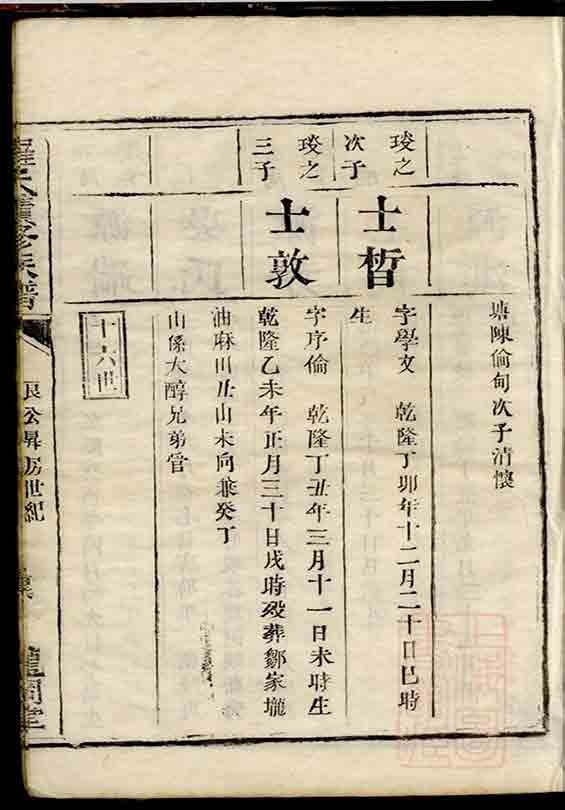 塘陳倫甸次子清懷
玹之
次子
士晳
字學文 乾隆丁卯年十二月二十日巳時
生
玹之
三子
士敦
字序倫 乾隆丁丑年三月十一日未時生
乾隆乙未年正月三十日戌時歿葬鄒家壠
油麻田丑山未向兼癸丁
山係大醇兄弟管
十六世
族譜
良公昇房世紀